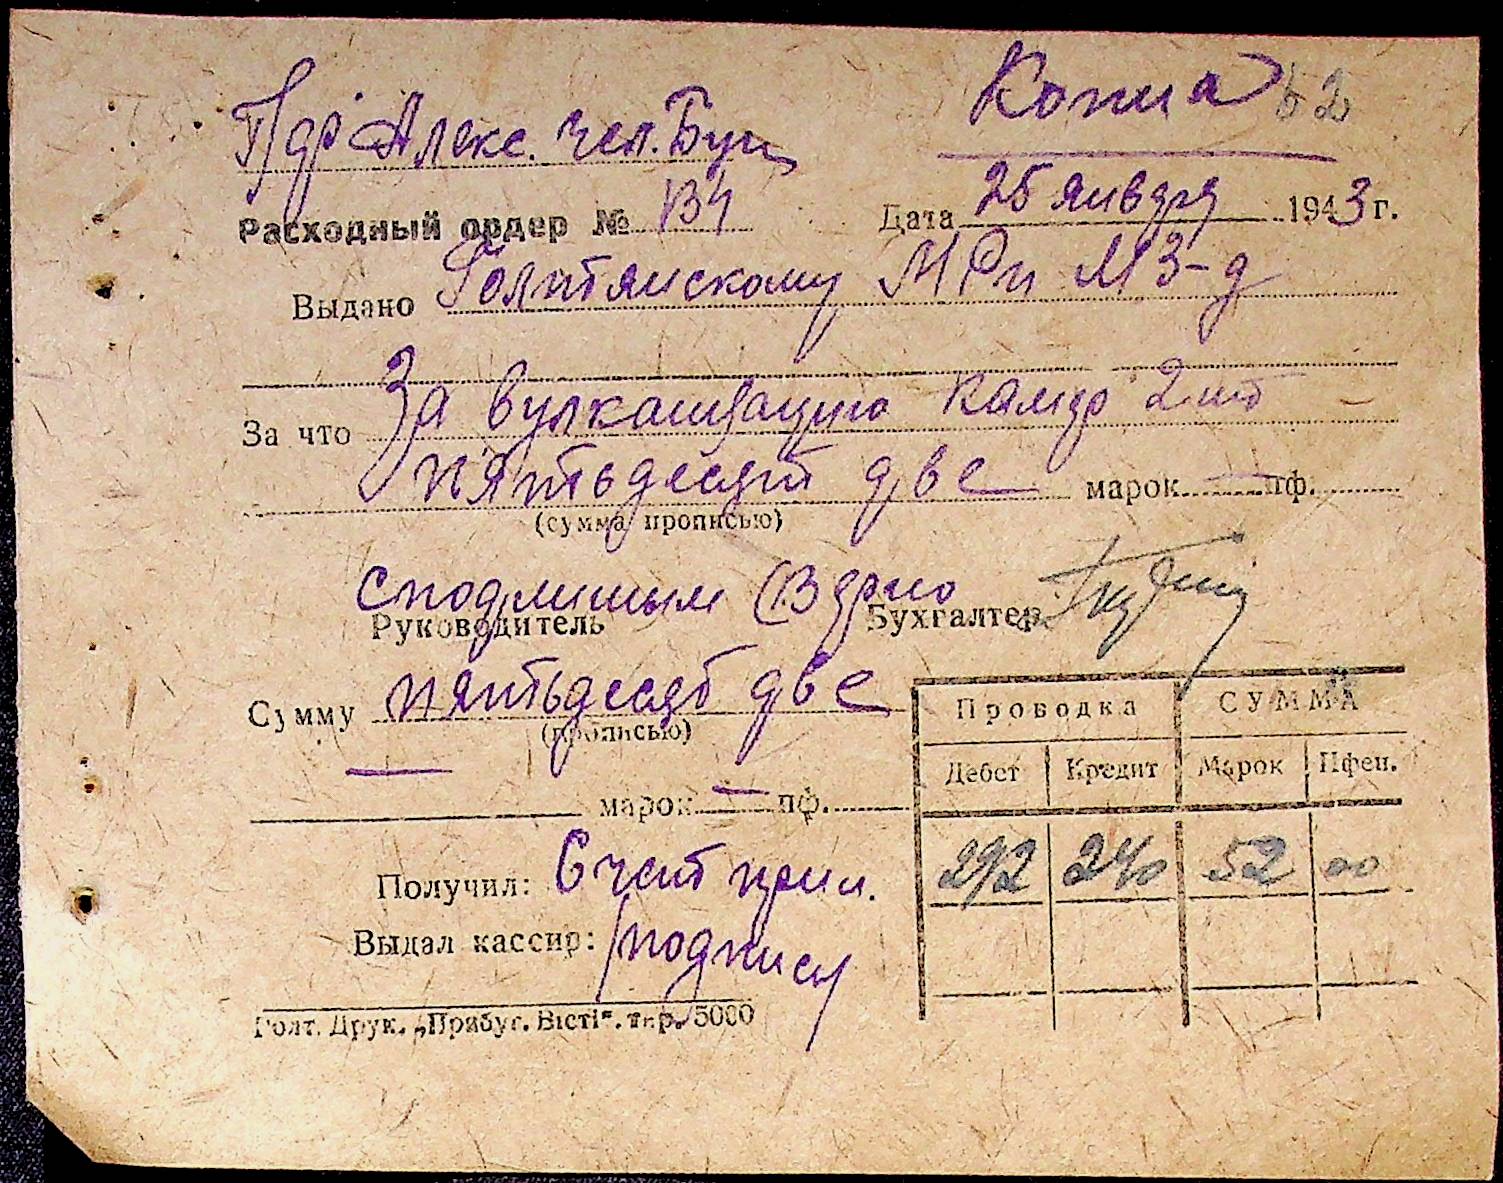 Копия 52
Алекс. чел. Буц
Расходный ордер № 134 Дата 25 января 1943 г.
Выдано Голтянскому М З-д
За что За вулканизацию камер 2 шт
пятьдесят две марок — пф.
(сумма прописью)
с подлиным Верно
Руководитель Бухгалтер
Сумму пятьдесят две
(прописью)
— марок — пф.
Проводка СУММА
Дебет Кредит Марок Пфен.
292 240 52 00
Получил: Счет прил.
Выдал кассир: подпись
Голт. Друк. „Прибуг. Вісті“. тир. 5000